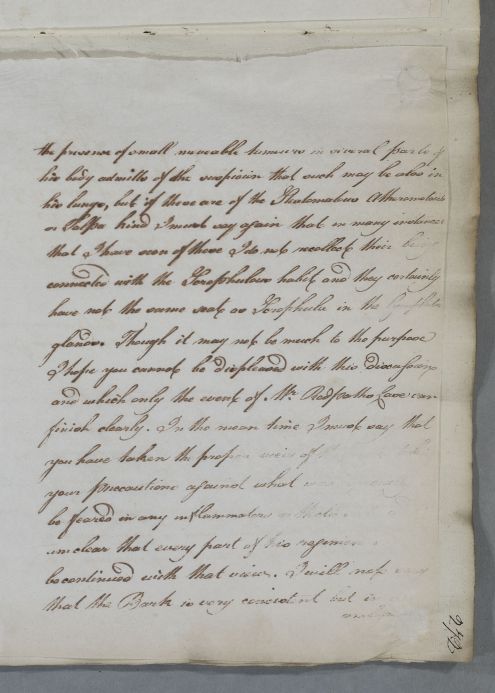 the presence of small moveable tumours in several parts of
his body admitts of the suspicion that such may be also in
his lungs, but if these are of the Steatomatous Atheromatous
or Talpa kind I must say again that in many instances
that I have seen of these I do not recollect their being
connected with the Scrophulous habit and they certainly
have not the same seat as Scrophula in the
glands. Though it may not be much to the purpose
I hope you cannot be displeased with this discussion
and which only the event of Mr. case can
finish clearly. In the mean time I must say that
you have taken the proper view of
your precautions against what
be feared in any inflammatory
clear that every part of his regimen
be continued with that view. I will not say
that the Bark is very consistent but
242